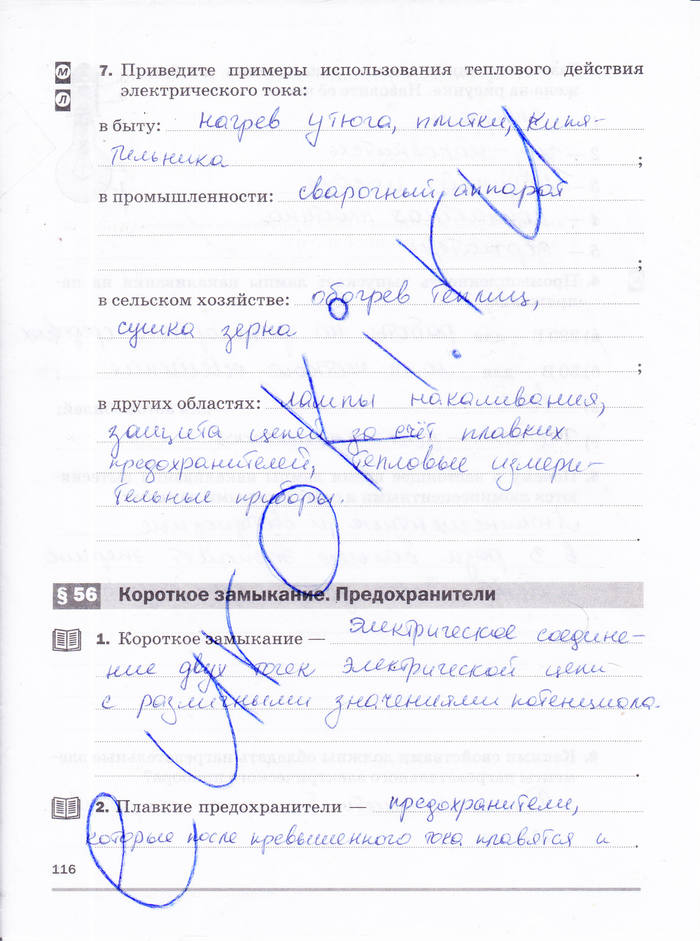 М
Л
7. Приведите примеры использования теплового действия
электрического тока:
в быту: нагрев утюга, плитки, кипя-
тильника ;
в промышленности: сварочный аппарат
;
в сельском хозяйстве: обогрев теплиц,
сушка зерна
;
в других областях: лампы накаливания,
защита цепей за счёт плавких
предохранителей, тепловые измери-
тельные приборы.
.
§ 56 Короткое замыкание. Предохранители
1. Короткое замыкание — Электрическое соедине-
ние двух точек электрической цепи
с различными значениями потенциала.
.
2. Плавкие предохранители — предохранители,
которые после превышенного тока плавятся и .
116